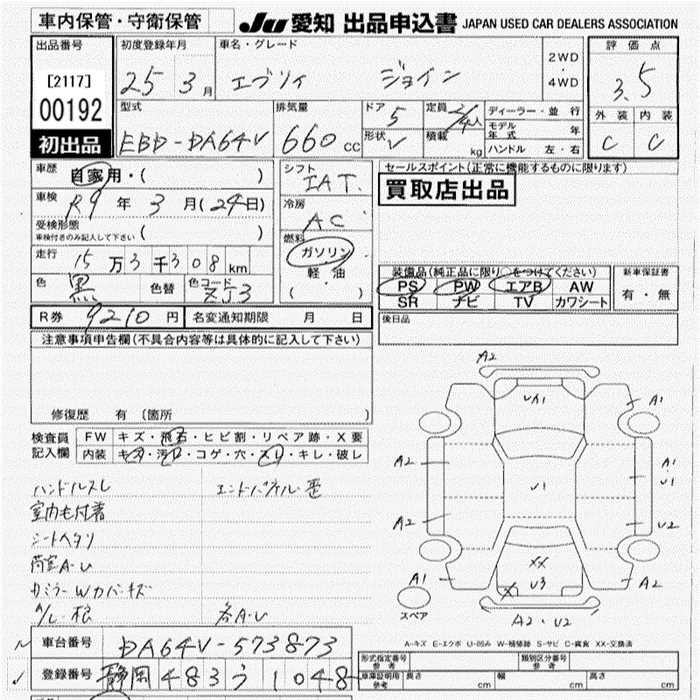 車内保管・守衛保管
JU 愛知 出品申込書 JAPAN USED CAR DEALERS ASSOCIATION
出品番号 初度登録年月 車名・グレード 評価点
[2117] 25 3月 エブリイ ジョイン 2WD・4WD 3.5
00192 型式 排気量 ドア 5 定員 ディーラー・並行 外装 内装
モデル年式 年
初出品 EBD-DA64V 660cc 形状 V 積載 kg ハンドル 左・右 C C
車歴 自家用・( ) シフト IAT セールスポイント(正常に機能するものに限ります)
車検 R9年 3月(24日) 冷房 AC 買取店出品
受検形態
車検付きのみ記入して下さい ( )
燃料 ガソリン 軽・油 ( )
走行 15万3千308km
色 黒 色替 色コード ZJ3
装備品(純正品に限り○をつけてください) 新車保証書
PS PW エアB AW 有・無
SR ナビ TV カワシート
R券 9210円 名変通知期限 月 日 後日品
注意事項申告欄(不具合内容等は具体的に記入して下さい)
修復歴 有 (箇所
検査員記入欄 FW キズ・飛石・ヒビ割・リペア跡・X要
内装 キズ・汚レ・コゲ・穴・スレ・キレ・破レ
ハンドルスレ
室内毛付着
シートヘタリ
荷室A・U
カミラーWカバーキズ
A/L・根
各A・U
A2
UA1
A1
A2 A1
U1 U1
A2 U2
XX
A1 X U3 A2
スペア
A2・U2
A-キズ E-エクボ U-凹み W-補修跡 S-サビ C-腐食 XX-交換済
車台番号 DA64V-573873
登録番号 静岡 483 う 1048
形式指定番号 参考 類別区分番号 参考
車庫証明用 参考 長さ cm 幅 cm 高さ cm